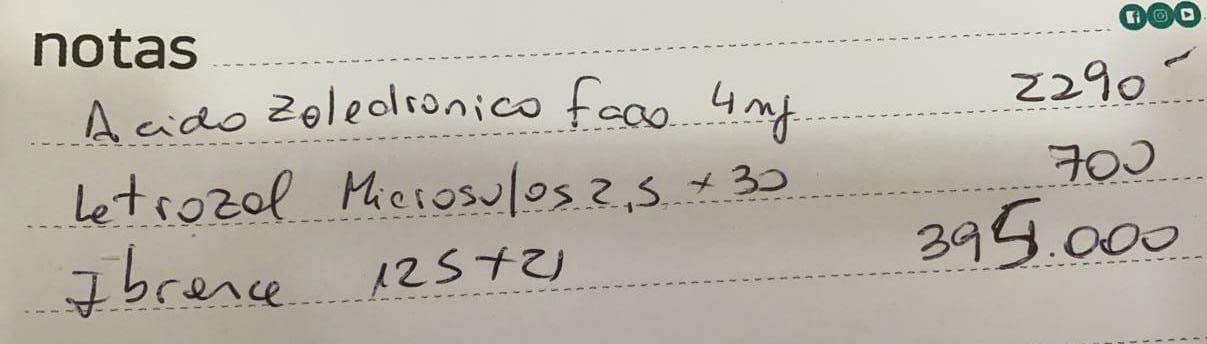 notas
Acido Zoledronico fcao 4mg 2290-
Letrozol Microsulos 2,5 x 30 700
Ibrance 125 + 21 395.000